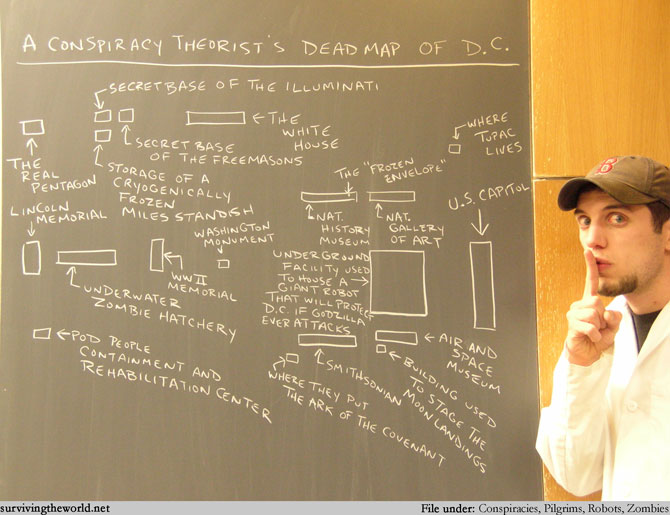 A CONSPIRACY THEORIST'S DEAD MAP OF D.C.
SECRET BASE OF THE ILLUMINATI
THE
WHITE
HOUSE
WHERE
TUPAC
LIVES
THE
REAL
PENTAGON
SECRET BASE
OF THE FREEMASONS
STORAGE OF A
CRYOGENICALLY
FROZEN
MILES STANDISH
THE "FROZEN
ENVELOPE"
U.S. CAPITOL
LINCOLN
MEMORIAL
WASHINGTON
MONUMENT
NAT.
HISTORY
MUSEUM
NAT.
GALLERY
OF ART
UNDERWATER
ZOMBIE HATCHERY
WWII
MEMORIAL
UNDERGROUND
FACILITY USED
TO HOUSE A
GIANT ROBOT
THAT WILL PROTECT
D.C. IF GODZILLA
EVER ATTACKS
POD PEOPLE
CONTAINMENT AND
REHABILITATION CENTER
SMITHSONIAN
AIR AND
SPACE
MUSEUM
WHERE THEY PUT
THE ARK OF THE COVENANT
BUILDING USED
TO STAGE THE
MOON LANDINGS
B
survivingtheworld.net
File under: Conspiracies, Pilgrims, Robots, Zombies